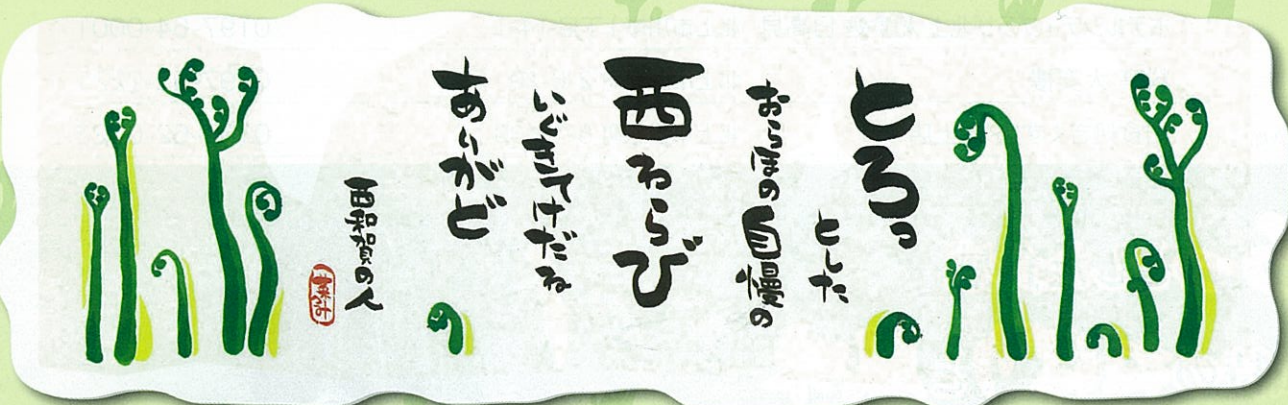 とろっ
とした
おらほの自慢の
西わらび
いぐきてけだね
ありがど
西和賀の人